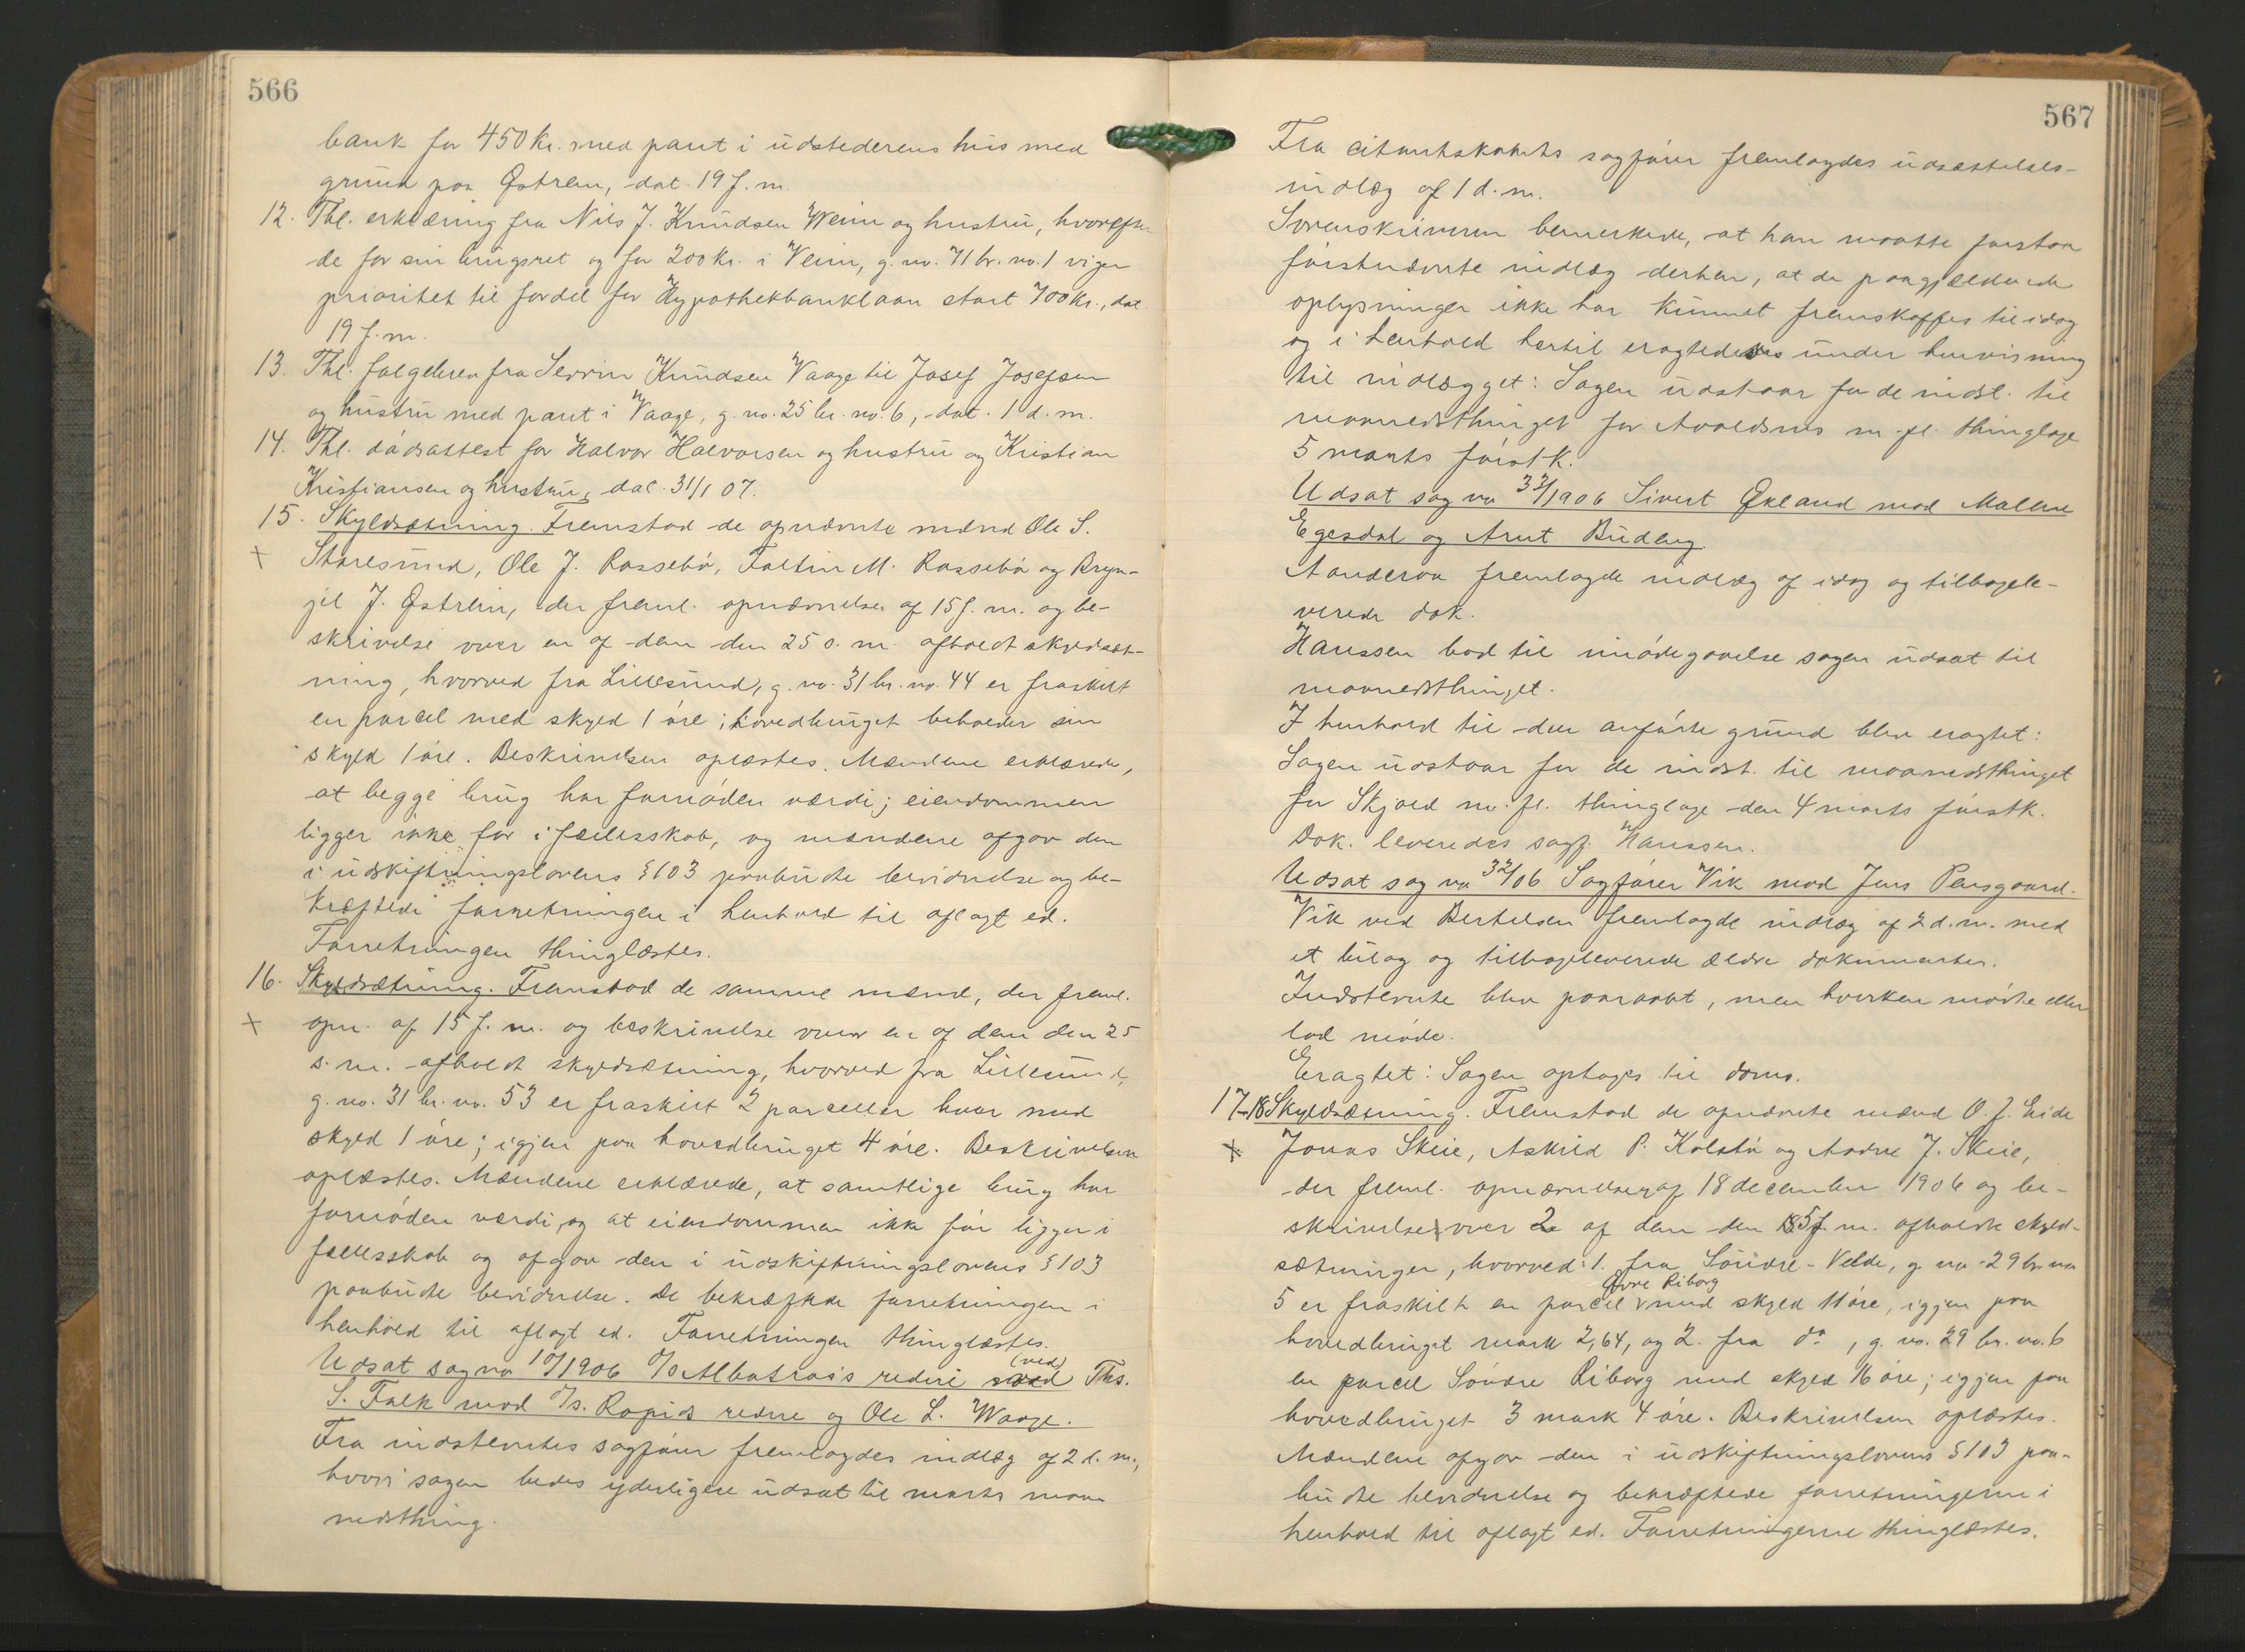 566
bank for 450 Kr. med pant i udstederens hus med
grund paa Østrem, dat. 19 f. m.
12. Thl. erklæring fra Nils J. Knudsen Weim og hustru, hvorefter
de for sin brugsret og for 200 kr. i Veim, g. no. 71 br. no. 1 viger
prioritet til fordel for Hypothekbanklaan stort 700 kr., dat
19 f. m.
13. Thl. følgebrev fra Serrin Knudsen Vaage til Josef Josefsen
og hustru med pant i Vaage, g. no. 25 br. no. 6, dat. 1 d. m.
14. Thl. dødsattest for Halvor Halvorsen og hustru og Kristian
Kristiansen og hustru, dat. 31/1 07.
15. Skyldsætning. Fremstod de opnævnte mænd Ole S.
Staresund, Ole J. Rossebø, Faltin M. Rossebø og Bryn-
jel J. Østrem, der freml. opnævnelse af 15 f. m. og be-
skrivelse over en af dem den 25 s. m. afholdt skyldsæt-
ning, hvorved fra Lillesund, g. no. 31 br. no. 44 er fraskilt
en parcel med skyld 1 øre; hovedbruget beholder sin
skyld 1 øre. Beskrivelsen oplæstes. Mændene erklærede,
at begge brug har fornøden værdi; eiendommen
ligger ikke før i fællesskab, og mændene afgav den
i udskiftningslovens § 103 paabudte bevidnelse og be-
kræftede forretningen i henhold til aflagt ed.
Forretningen thinglæstes.
16. Skyldsætning. Fremstod de samme mænd, der freml.
opn. af 15 f. m. og beskrivelse over en af dem den 25
s. m. afholdt skyldsætning, hvorved fra Lillesund,
g. no. 31 br. no. 53 er fraskilt 2 parceller hver med
skyld 1 øre; igjen paa hovedbruget 4 øre. Beskrivelsen
oplæstes. Mændene erklærede, at samtlige brug har
fornøden værdi, og at eiendommen ikke før ligger i
fællesskab og afgav den i udskiftningslovens § 103
paabudte bevidnelse. De bekræftede forretningen i
henhold til aflagt ed. Forretningen thinglæstes.
Udsat sag no 10/1906 A/S Albatros's rederi (ved) Ths.
S. Falk mod A/S. Rapids rederi og Ole L. Waage.
Fra indstevntes sagfører fremlagdes indlæg af 2 d. m.,
hvori sagen bedes yderligere udsat til marts maa-
nedsthing.
567
Fra citantskabets sagfører fremlagdes udsættelses-
indlæg af 1 d. m.
Sorenskriveren bemerkede, at han maatte forstaa
førstnævnte indlæg derhen, at de paagjældende
oplysninger ikke har kunnet fremskaffes til idag
og i henhold hertil eragtedes under henvisning
til indlægget: Sagen udstaar for de indst. til
maanedsthinget for Avaldsnes m. fl. thinglage
5 marts førstk.
Udsat sag no 33/1906 Sivert Økland mod Malene
Egesdal og Arnt Budeng.
Aanderaa fremlagde indlæg af idag og tilbagele-
verede dok.
Hanssen bad til imødegaaelse sagen udsat til
maanedsthinget.
I henhold til den anførte grund blev eragtet:
Sagen udstaar for de indst. til maanedsthinget
for Skjold m. fl. thinglage den 4 marts førstk.
Dok. leveredes sagf. Hanssen.
Udsat sag no 32/06 Sagfører Vik mod Jens Pensgaard.
Vik ved Bertelsen fremlagde indlæg af 2 d. m. med
et bilag og tilbageleverede ældre dokumenter.
Indstevnte blev paaraabt, men hverken mødte eller
lod møde.
Eragtet: Sagen optages til doms.
17-18 Skyldsætning. Fremstod de opnævnte mænd O. J. Eide
Jonas Skeie, Askild P. Kolstø og Aadne J. Skeie,
der freml. opnævnelser af 18 december 1906 og be-
skrivelser over 2 af dem den 15 f. m. afholdte skyld-
sætninger, hvorved: 1. fra Søndre-Velde, g no 29 br. no
5 er fraskilt en parcel Øvre Riborg med skyld 11 øre, igjen paa
hovedbruget mark 2,64, og 2. fra do, g. no. 29 br. no. 6
en parcel Søndre Riborg med skyld 16 øre; igjen paa
hovedbruget 3 mark 4 øre. Beskrivelsen oplæstes.
Mændene afgav den i udskiftningslovens § 103 paa-
budte bevidnelse og bekræftede forretningerne i
henhold til aflagt ed. Forretningerne thinglæstes.